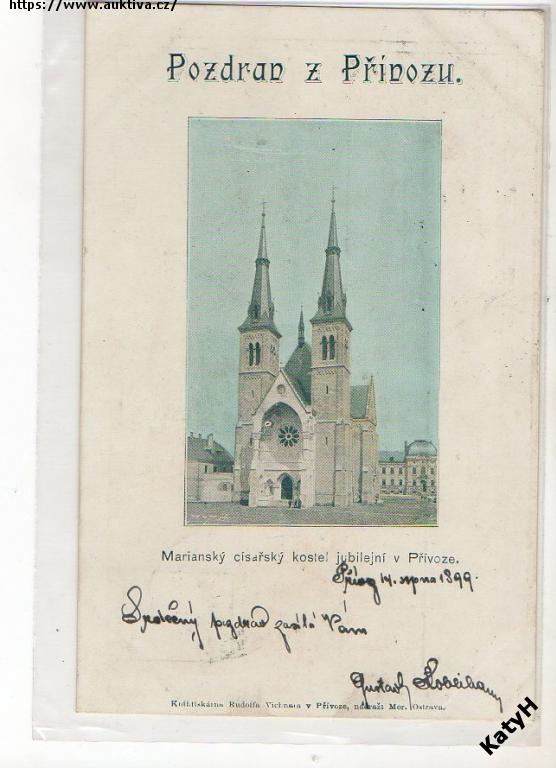 https://www.auktiva.cz/
Pozdrav z Přívozu.
Marianský císařský kostel jubilejní v Přívoze.
Přívoz 14. srpna 1899.
Srdečný pozdrav zasílá Vám
Gustav
Knihtiskárna Rudolfa Vichnara v Přívoze, nádraží Mor. Ostrava.
KatyH